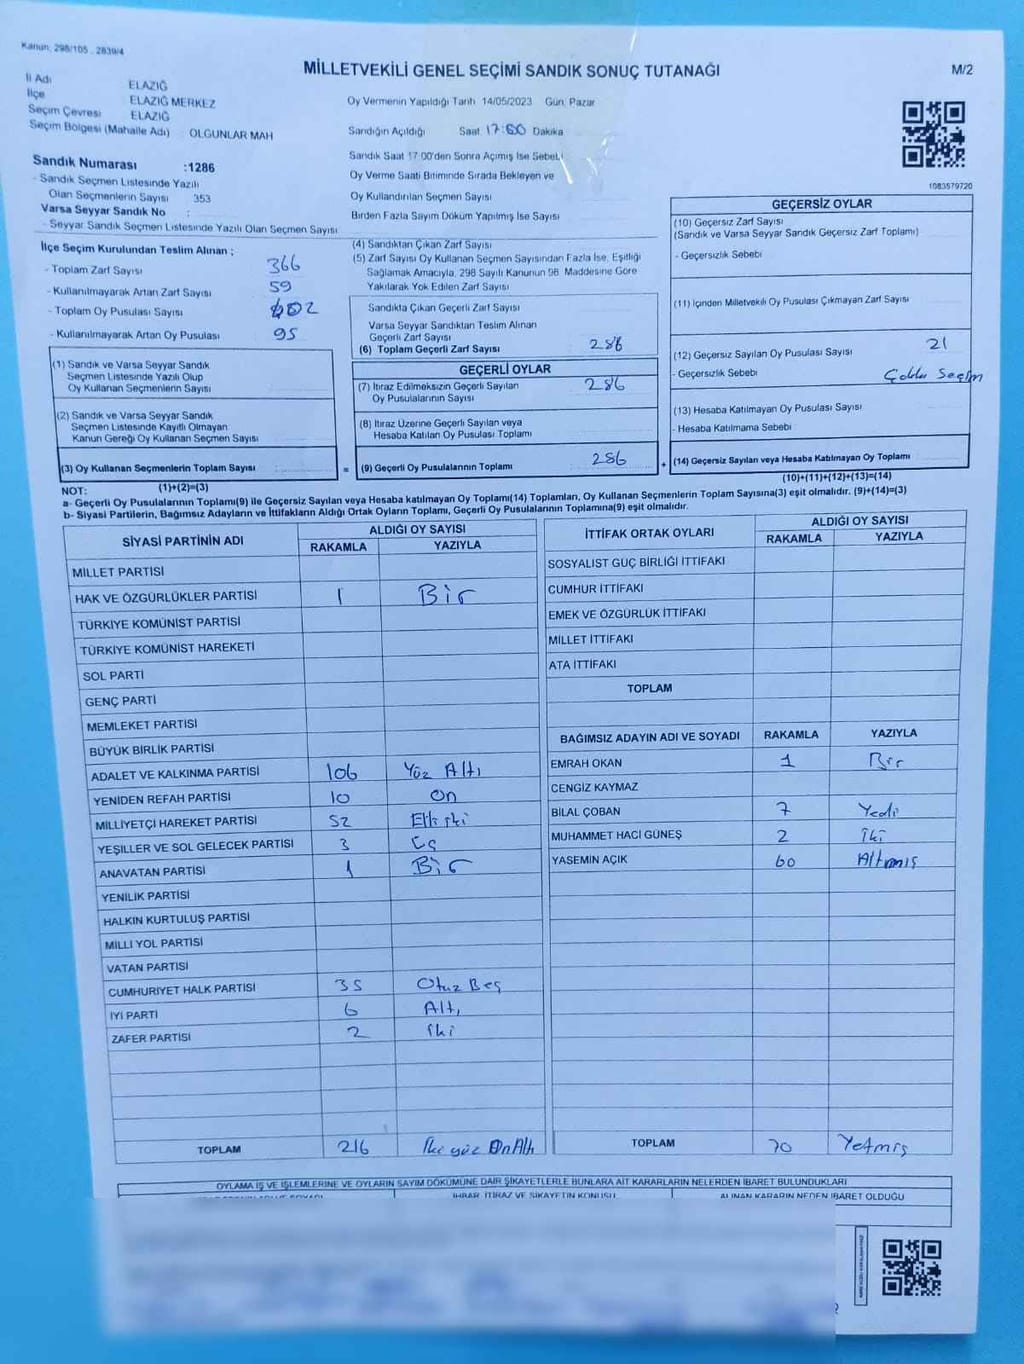 Kanun: 298/105 . 2839/4
MİLLETVEKİLİ GENEL SEÇİMİ SANDIK SONUÇ TUTANAĞI
M/2
İl Adı ELAZIĞ
İlçe ELAZIĞ MERKEZ
Seçim Çevresi ELAZIĞ
Seçim Bölgesi (Mahalle Adı) OLGUNLAR MAH
Sandık Numarası :1286
- Sandık Seçmen Listesinde Yazılı
Olan Seçmenlerin Sayısı 353
Varsa Seyyar Sandık No :
- Seyyar Sandık Seçmen Listesinde Yazılı Olan Seçmen Sayısı
Oy Vermenin Yapıldığı Tarih 14/05/2023 Gün. Pazar
Sandığın Açıldığı Saat 17:00 Dakika
Sandık Saat 17 00'den Sonra Açımış İse Sebebi
Oy Verme Saati Bitiminde Sırada Bekleyen ve
Oy Kullandırılan Seçmen Sayısı
Birden Fazla Sayım Döküm Yapılmış İse Sayısı
1083579720
İlçe Seçim Kurulundan Teslim Alınan ;
- Toplam Zarf Sayısı 366
- Kullanılmayarak Artan Zarf Sayısı 59
- Toplam Oy Pusulası Sayısı 402
- Kullanılmayarak Artan Oy Pusulası 95
(1) Sandık ve Varsa Seyyar Sandık
Seçmen Listesinde Yazılı Olup
Oy Kullanan Seçmenlerin Sayısı
(2) Sandık ve Varsa Seyyar Sandık
Seçmen Listesinde Kayıtlı Olmayan
Kanun Gereği Oy Kullanan Seçmen Sayısı
(3) Oy Kullanan Seçmenlerin Toplam Sayısı
(1)+(2)=(3)
(4) Sandıktan Çıkan Zarf Sayısı
(5) Zarf Sayısı Oy Kullanan Seçmen Sayısından Fazla İse, Eşitliği
Sağlamak Amacıyla, 298 Sayılı Kanunun 98. Maddesine Göre
Yakılarak Yok Edilen Zarf Sayısı
Sandıkta Çıkan Geçerli Zarf Sayısı
Varsa Seyyar Sandıktan Teslim Alınan
Geçerli Zarf Sayısı
(6) Toplam Geçerli Zarf Sayısı 286
GEÇERLİ OYLAR
(7) İtiraz Edilmeksizin Geçerli Sayılan 286
Oy Pusulalarının Sayısı
(8) İtiraz Üzerine Geçerli Sayılan veya
Hesaba Katılan Oy Pusulaları Toplamı
= (9) Geçerli Oy Pusulalarının Toplamı 286 +
GEÇERSİZ OYLAR
(10) Geçersiz Zarf Sayısı
(Sandık ve Varsa Seyyar Sandık Geçersiz Zarf Toplamı)
- Geçersizlik Sebebi
(11) İçinden Milletvekili Oy Pusulası Çıkmayan Zarf Sayısı
(12) Geçersiz Sayılan Oy Pusulası Sayısı 21
- Geçersizlik Sebebi Çoklu Seçim
(13) Hesaba Katılmayan Oy Pusulası Sayısı
- Hesaba Katılmama Sebebi
(14) Geçersiz Sayılan veya Hesaba Katılmayan Oy Toplamı
(10)+(11)+(12)+(13)=(14)
NOT:
a- Geçerli Oy Pusulalarının Toplamı(9) ile Geçersiz Sayılan veya Hesaba katılmayan Oy Toplamı(14) Toplamları, Oy Kullanan Seçmenlerin Toplam Sayısına(3) eşit olmalıdır. (9)+(14)=(3)
b- Siyasi Partilerin, Bağımsız Adayların ve İttifakların Aldığı Ortak Oyların Toplamı, Geçerli Oy Pusulalarının Toplamına(9) eşit olmalıdır.
SİYASİ PARTİNİN ADI ALDIĞI OY SAYISI
RAKAMLA YAZIYLA
MİLLET PARTİSİ
HAK VE ÖZGÜRLÜKLER PARTİSİ 1 Bir
TÜRKİYE KOMÜNİST PARTİSİ
TÜRKİYE KOMÜNİST HAREKETİ
SOL PARTİ
GENÇ PARTİ
MEMLEKET PARTİSİ
BÜYÜK BİRLİK PARTİSİ
ADALET VE KALKINMA PARTİSİ 106 Yüz Altı
YENİDEN REFAH PARTİSİ 10 On
MİLLİYETÇİ HAREKET PARTİSİ 52 Elli iki
YEŞİLLER VE SOL GELECEK PARTİSİ 3 Üç
ANAVATAN PARTİSİ 1 Bir
YENİLİK PARTİSİ
HALKIN KURTULUŞ PARTİSİ
MİLLİ YOL PARTİSİ
VATAN PARTİSİ
CUMHURİYET HALK PARTİSİ 35 Otuz Beş
İYİ PARTİ 6 Altı
ZAFER PARTİSİ 2 İki
TOPLAM 216 İki yüz On Altı
İTTİFAK ORTAK OYLARI ALDIĞI OY SAYISI
RAKAMLA YAZIYLA
SOSYALİST GÜÇ BİRLİĞİ İTTİFAKI
CUMHUR İTTİFAKI
EMEK VE ÖZGÜRLÜK İTTİFAKI
MİLLET İTTİFAKI
ATA İTTİFAKI
TOPLAM
BAĞIMSIZ ADAYIN ADI VE SOYADI RAKAMLA YAZIYLA
EMRAH OKAN 1 Bir
CENGİZ KAYMAZ
BİLAL ÇOBAN 7 Yedi
MUHAMMET HACI GÜNEŞ 2 İki
YASEMİN AÇIK 60 Altmış
TOPLAM 70 Yetmiş
OYLAMA İŞ VE İŞLEMLERİNE VE OYLARIN SAYIM DÖKÜMÜNE DAİR ŞİKAYETLERLE BUNLARA AİT KARARLARIN NELERDEN İBARET BULUNDUKLARI
İHBAR, İTİRAZ VE ŞİKAYETİN KONUSU
ALINAN KARARIN NEDEN İBARET OLDUĞU